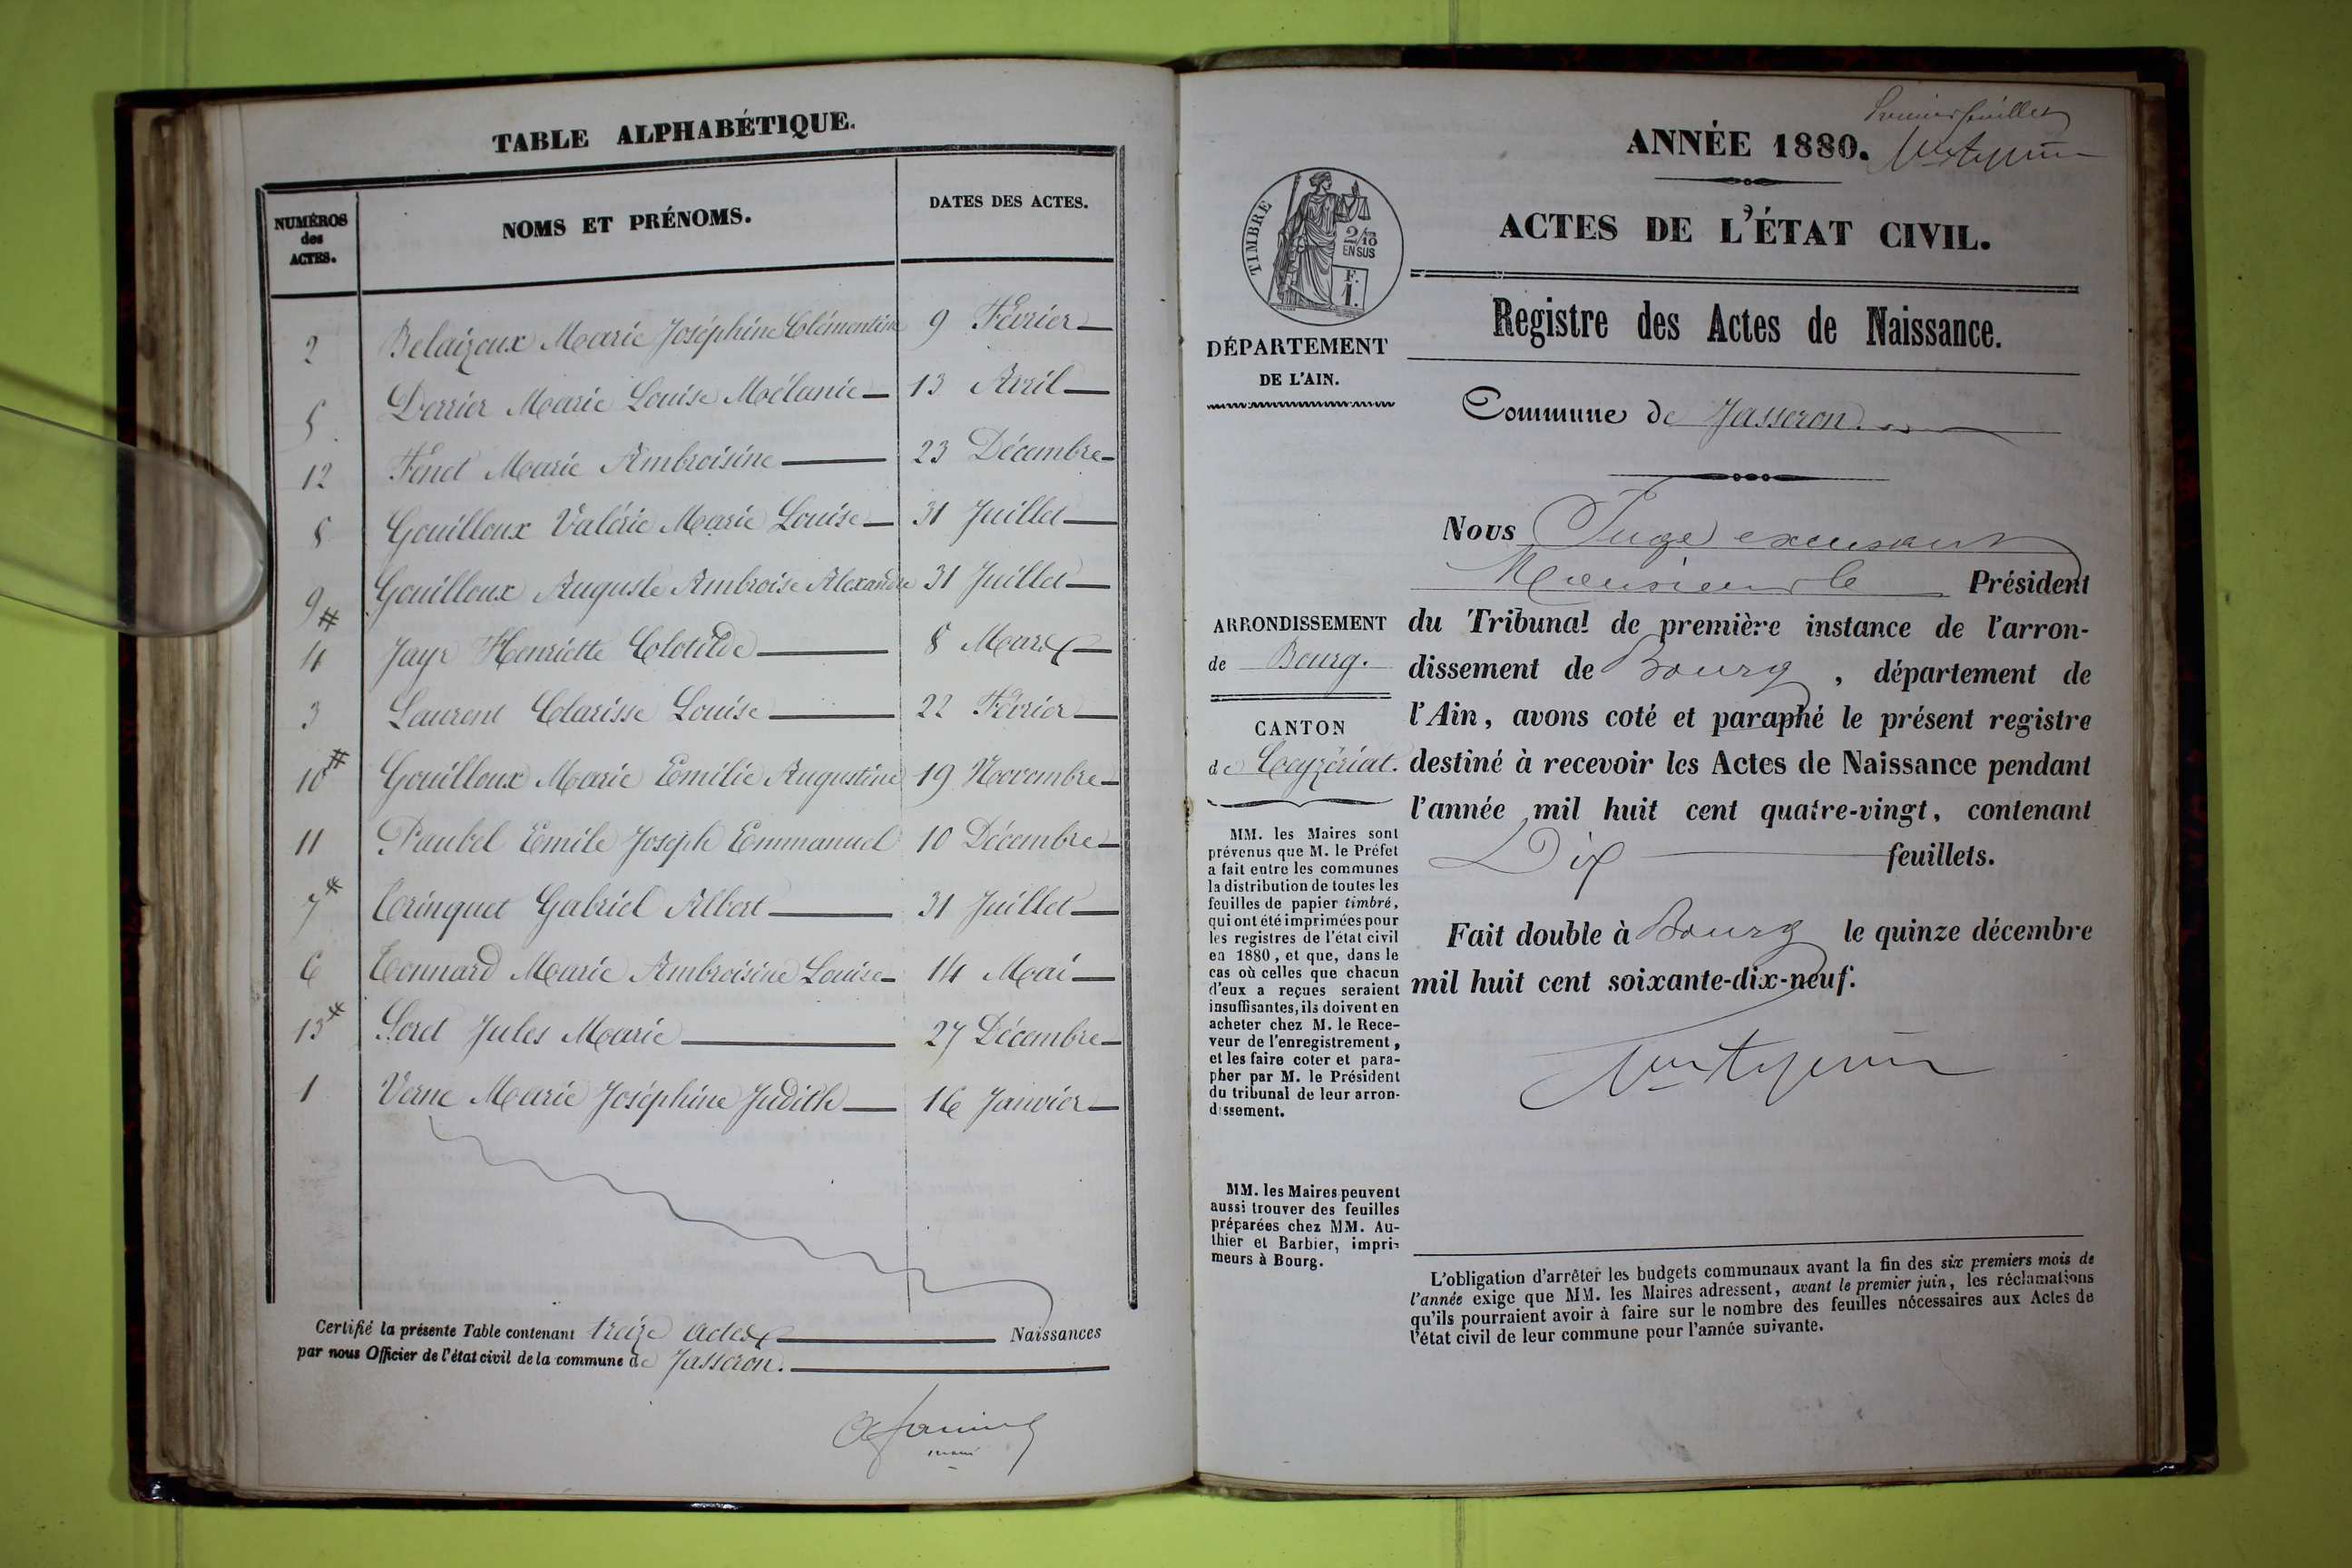 TABLE ALPHABÉTIQUE.
NUMÉROS des ACTES. NOMS ET PRÉNOMS. DATES DES ACTES.
2 Belaizoux Marie Joséphine Clémentine 9 Février
5. Derrier Marie Louise Mélanie 13 Avril
12 Fenet Marie Ambroisine 23 Décembre
8 Gouilloux Valérie Marie Louise 31 Juillet
9 # Gouilloux Auguste Ambroise Alexandre 31 Juillet
4 Jayr Henriette Clotilde 8 Mars
3 Laurent Clarisse Louise 22 Février
10 # Gouilloux Marie Emilie Augustine 19 Novembre
11 Paubel Emile Joseph Emmanuel 10 Décembre
7 # Gabriel Albert 31 Juillet
6 Tonnard Marie Ambroisine Louise 14 Mai
13 # Soret Jules Marie 27 Décembre
1 Verne Marie Joséphine Judith 16 Janvier
Certifié la présente Table contenant treize actes Naissances
par nous Officier de l'état civil de la commune de Jasseron.
Premier feuillet
ANNÉE 1880.
ACTES DE L'ÉTAT CIVIL.
TIMBRE
2/10
EN SUS
F.
1.
DÉPARTEMENT
DE L'AIN.
Registre des Actes de Naissance.
Commune de Jasseron.
ARRONDISSEMENT
de Bourg.
CANTON
de Ceyzériat.
MM. les Maires sont
prévenus que M. le Préfet
a fait entre les communes
la distribution de toutes les
feuilles de papier timbré,
qui ont été imprimées pour
les registres de l'état civil
en 1880, et que, dans le
cas où celles que chacun
d'eux a reçues seraient
insuffisantes, ils doivent en
acheter chez M. le Rece-
veur de l'enregistrement,
et les faire coter et para-
pher par M. le Président
du tribunal de leur arron-
dissement.
MM. les Maires peuvent
aussi trouver des feuilles
préparées chez MM. Au-
thier et Barbier, impri-
meurs à Bourg.
Nous Juge excusant
Monsieur le Président
du Tribunal de première instance de l'arron-
dissement de Bourg, département de
l'Ain, avons coté et paraphé le présent registre
destiné à recevoir les Actes de Naissance pendant
l'année mil huit cent quatre-vingt, contenant
Dix feuillets.
Fait double à Bourg le quinze décembre
mil huit cent soixante-dix-neuf.
L'obligation d'arrêter les budgets communaux avant la fin des six premiers mois de
l'année exige que MM. les Maires adressent, avant le premier juin, les réclamations
qu'ils pourraient avoir à faire sur le nombre des feuilles nécessaires aux Actes de
l'état civil de leur commune pour l'année suivante.